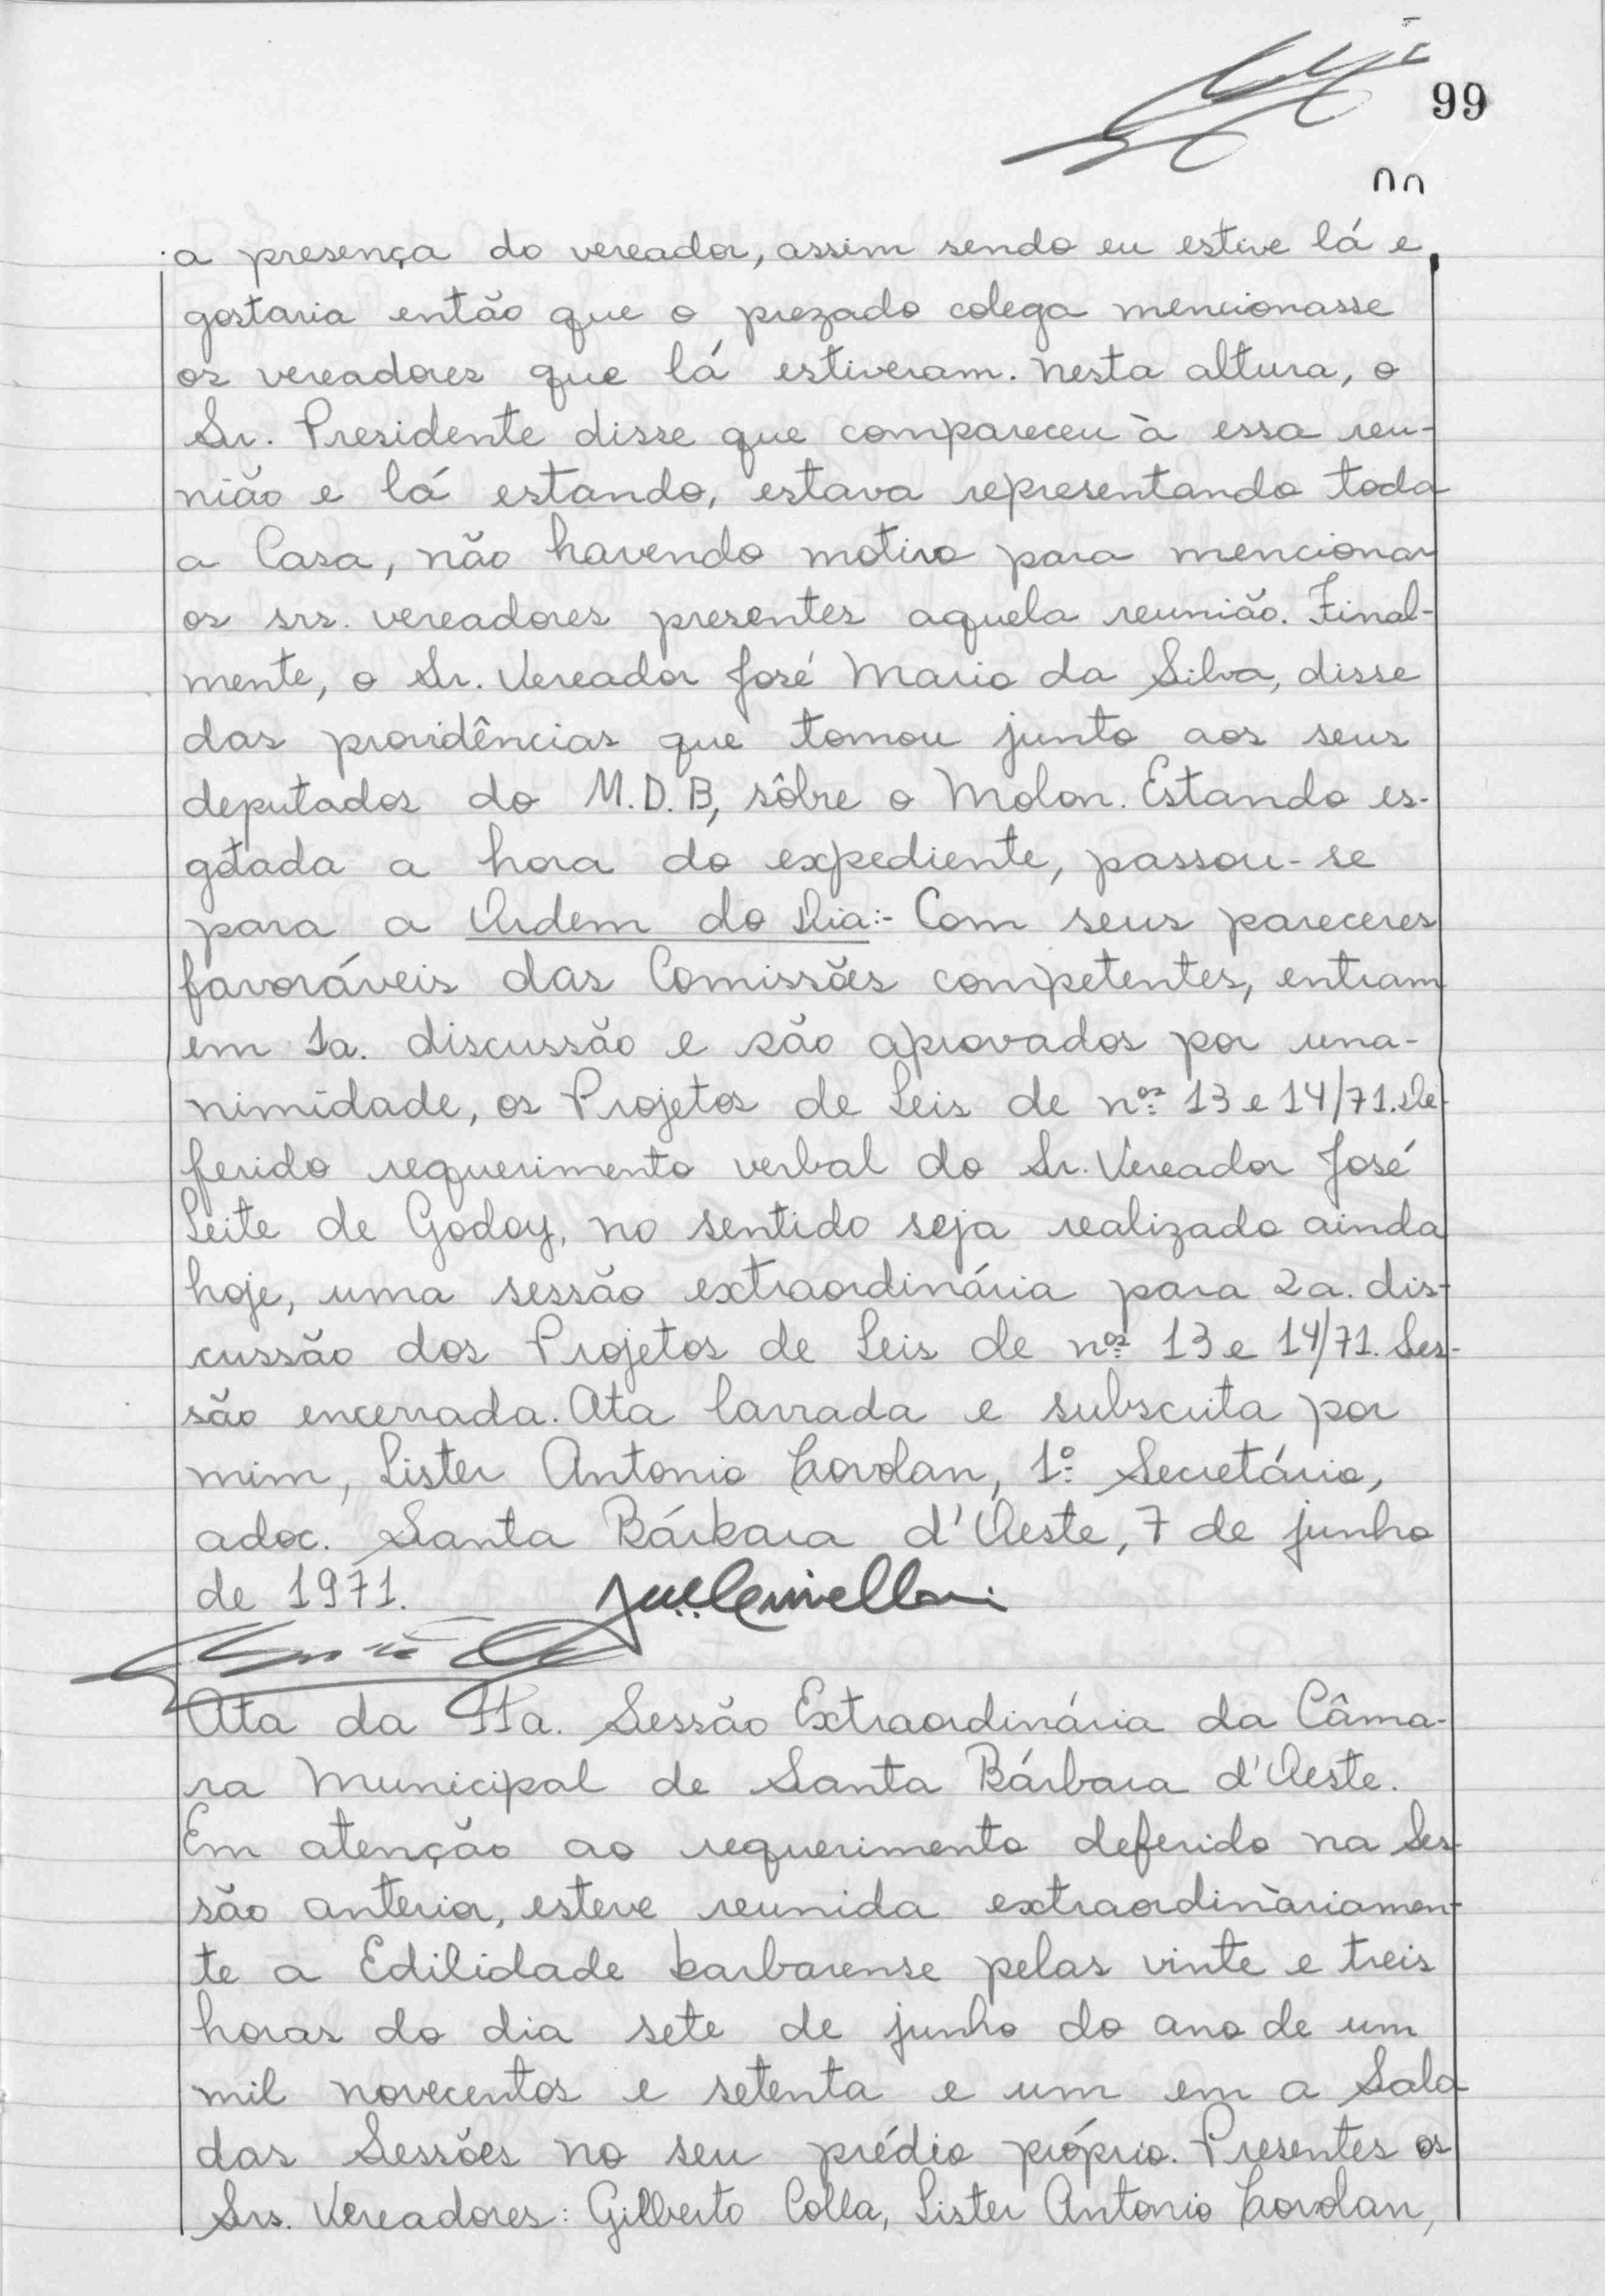 99
a presença do vereador, assim sendo eu estive lá e
gostaria então que o prezado colega mencionasse
os vereadores que lá estiveram. Nesta altura, o
Sr. Presidente disse que compareceu à essa reu-
nião e lá estando, estava representando toda
a Casa, não havendo motivo para mencionar
os srs. vereadores presentes aquela reunião. Final-
mente, o Sr. Vereador José Maria da Silva, disse
das providências que tomou junto aos seus
deputados do M.D.B, sôbre o Molon. Estando es-
gotada a hora do expediente, passou-se
para a Ordem do Dia:- Com seus pareceres
favoráveis das Comissões competentes, entram
em 1a. discussão e são aprovados por una-
nimidade, os Projetos de Leis de nos 13 e 14/71. De-
ferido requerimento verbal do Sr. Vereador José
Leite de Godoy, no sentido seja realizado ainda
hoje, uma sessão extraordinária para 2a. dis-
cussão dos Projetos de Leis de nos 13 e 14/71. Ses-
são encerrada. Ata lavrada e subscrita por
mim, Lister Antonio 1º Secretário,
adoc. Santa Bárbara d'Oeste, 7 de junho
de 1971.
Ata da 11a. Sessão Extraordinária da Câma-
ra Municipal de Santa Bárbara d'Oeste.
Em atenção ao requerimento deferido na Ses-
são anterior, esteve reunida extraordinàriamen-
te a Edilidade barbarense pelas vinte e treis
horas do dia sete de junho do ano de um
mil novecentos e setenta e um em a Sala
das Sessões no seu prédio próprio. Presentes os
Srs. Vereadores: Gilberto Colla, Lister Antonio